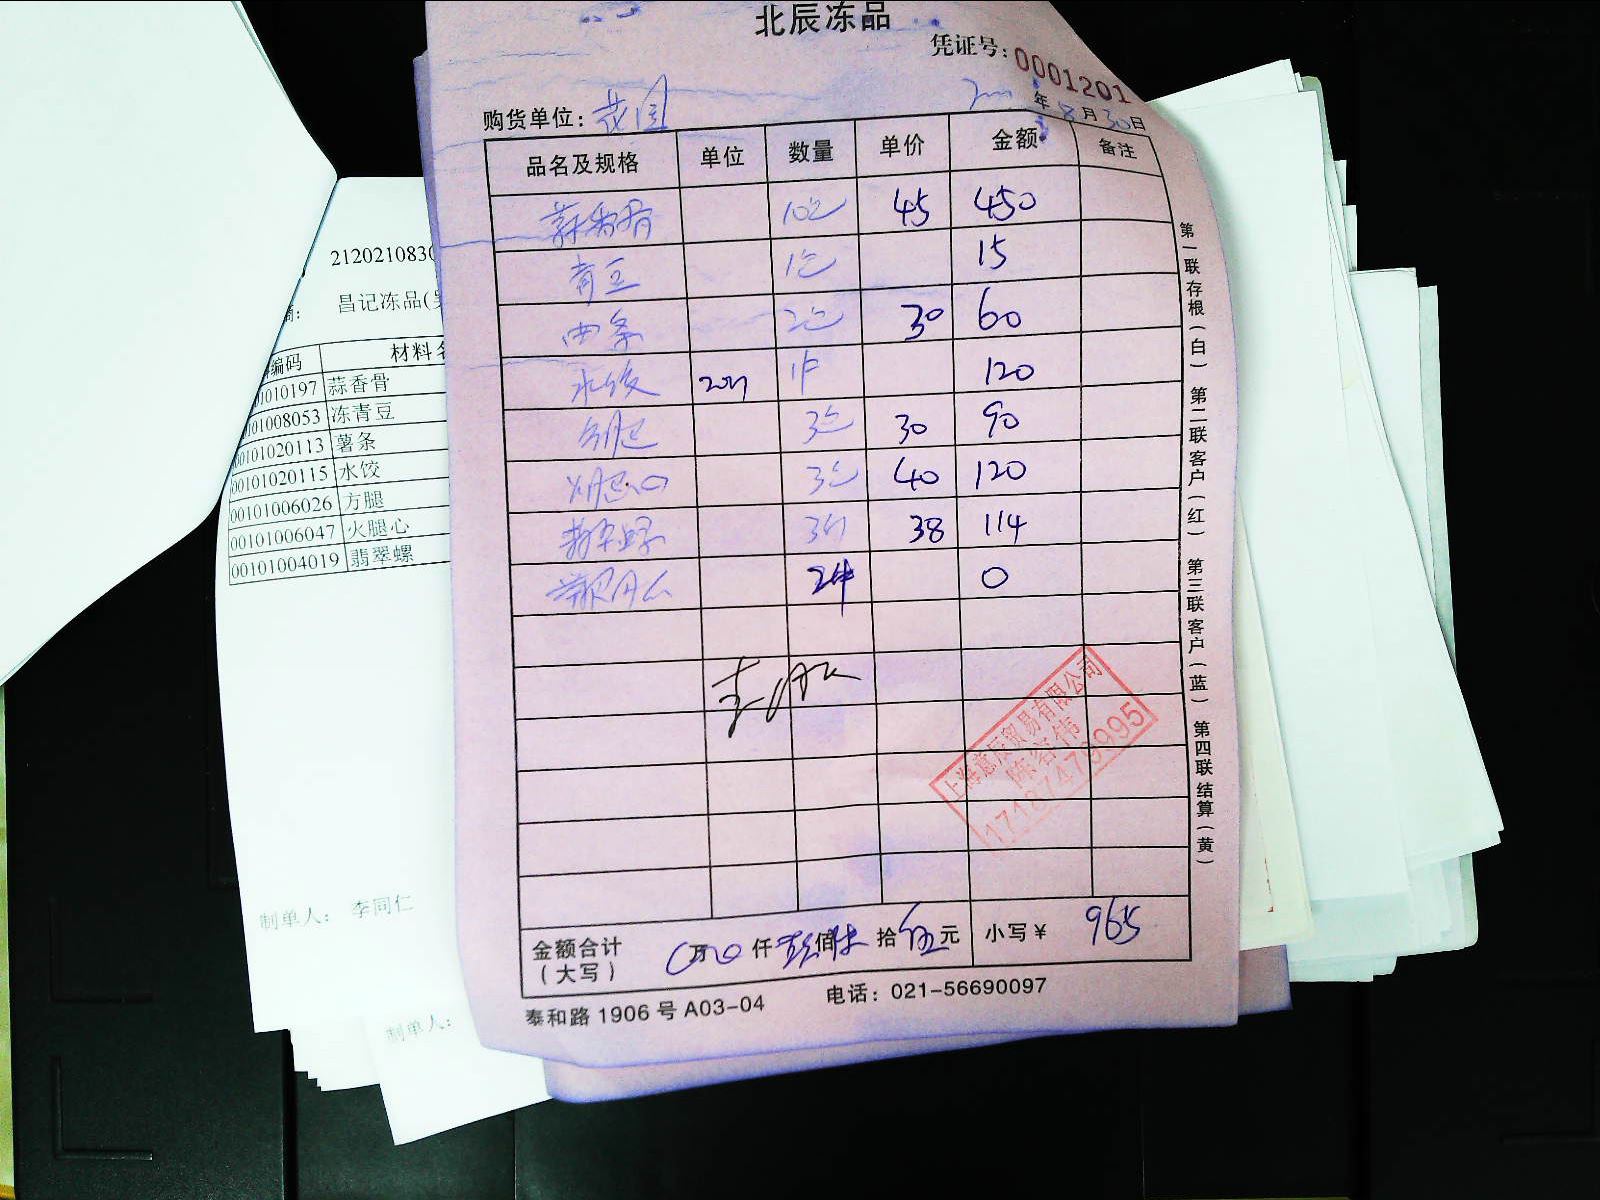 北辰冻品
凭证号:0001201
年8月30日
购货单位:花园
品名及规格 单位 数量 单价 金额 备注
蒜香骨 10包 45 450
青豆 1包 15
1包 2包 30 60
水饺 1件 120
方腿 3包 30 90
火腿心 3包 40 120
翡翠螺 38 114
0
金额合计 0万0仟玖佰陆拾伍元 小写¥ 965
(大写)
泰和路1906号A03-04 电话:021-56690097
第一联存根(白) 第二联客户(红) 第三联客户(蓝) 第四联结算(黄)
212021083
昌记冻品(
编码 材料名
01010197 蒜香骨
0101008053 冻青豆
00101020113 薯条
00101020115 水饺
00101006026 方腿
00101006047 火腿心
00101004019 翡翠螺
制单人: 李同仁
制单人: